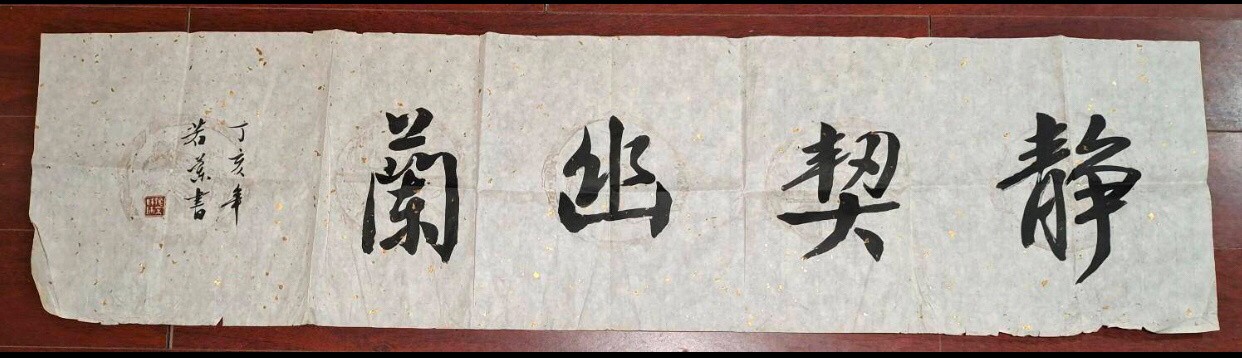 静契幽蘭
丁亥年
若蘭書